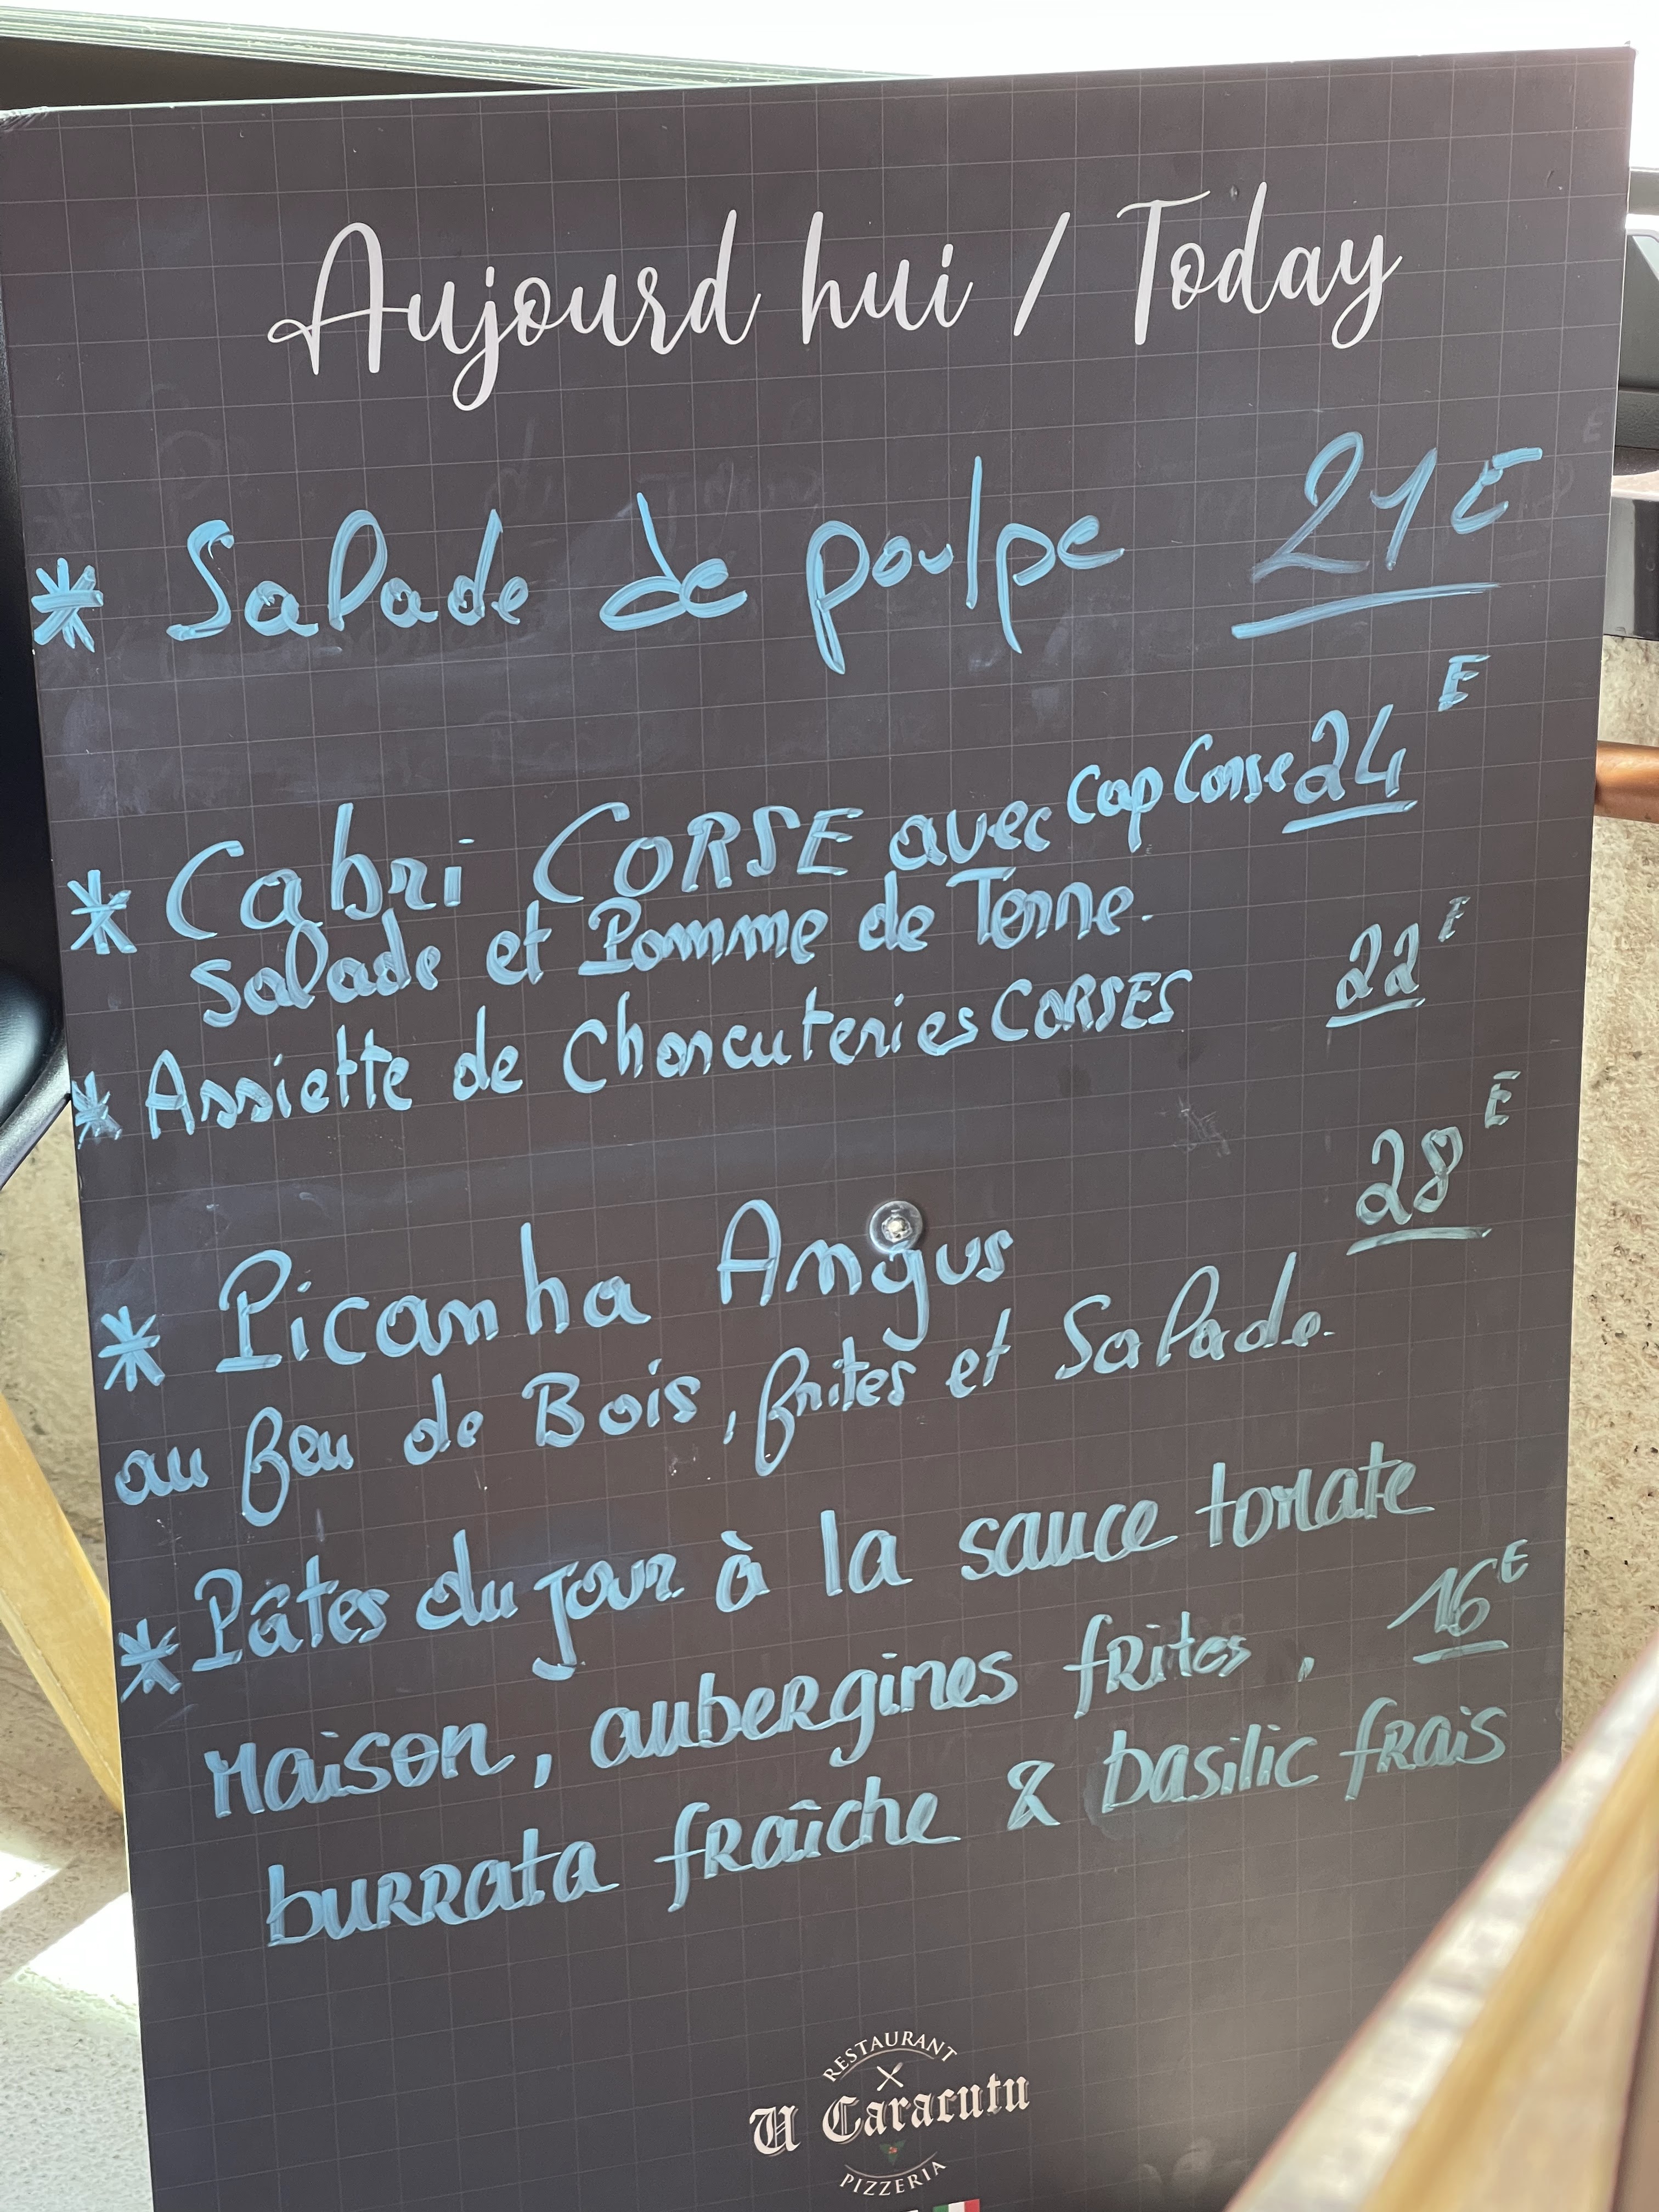 Aujourd hui / Today
* Salade de poulpe 21E
* Cabri CORSE avec Cap Corse 24E
Salade et Pomme de Terre.
* Assiette de Charcuteries CORSES 22E
* Picanha Angus 28E
au feu de Bois, frites et Salade.
* Pâtes du jour à la sauce tomate
Maison, aubergines frites, 16E
burrata fraîche & basilic frais
RESTAURANT
U Caracutu
PIZZERIA